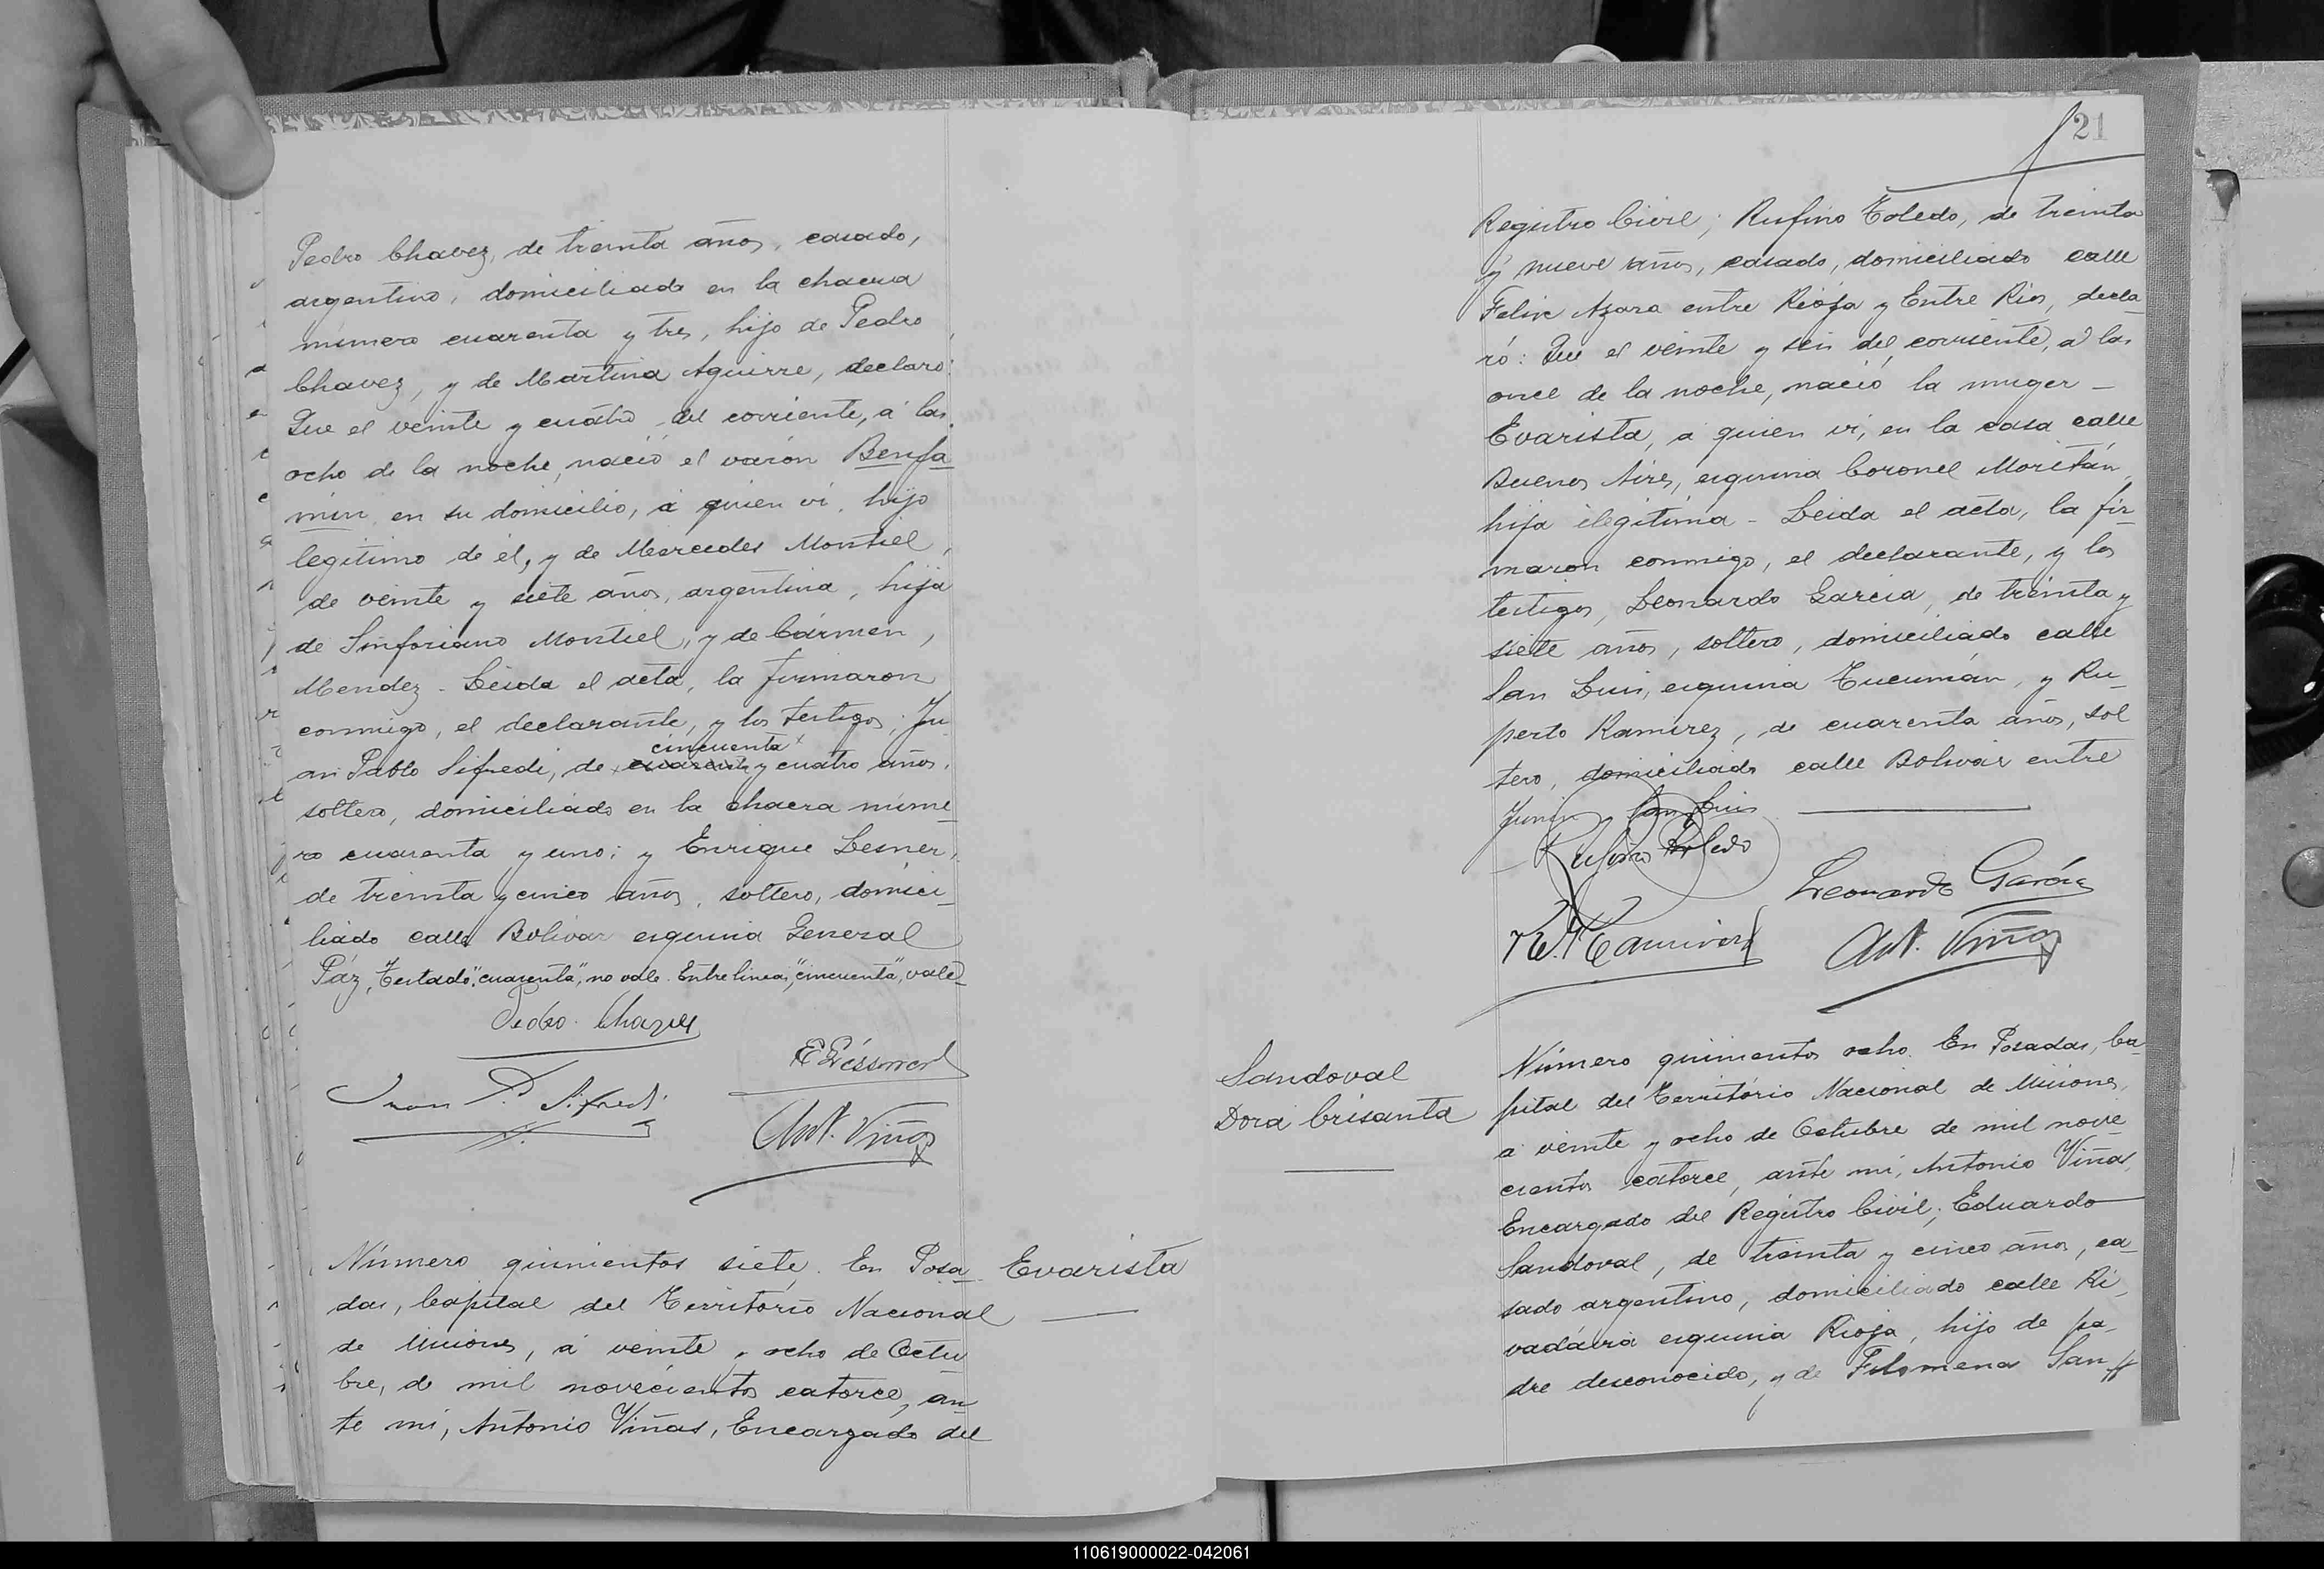 Pedro Chavez, de treinta años, casado,
argentino, domiciliado en la chacra
número cuarenta y tres, hijo de Pedro
Chavez, y de Martina Aguirre, declaró:
Que el veinte y cuatro del corriente, á las
ocho de la noche, nació el varón Benja
min en su domicilio, á quien ví, hijo
legítimo de él, y de Mercedes Montiel,
de veinte y siete años, argentina, hija
de Sinforiano Montiel, y de Cármen,
Mendez - Leida el acta, la firmaron
conmigo, el declarante, y los testigos; Ju
cincuenta
an Pablo Sifredi, de cuarenta y cuatro años,
soltero, domiciliado en la chacra núme
ro cuarenta y uno; y Enrique Lesner,
de treinta y cinco años, soltero, domici
liado calle Bolivar esquina General
Páz, Testado: "cuarenta", no vale. Entre lineas, "cincuenta", vale
Pedro Chavez
E Léssner
Juan P. Sifredi
Ant. Viñas
Número quinientos siete. En Posa
das, Capital del Territorio Nacional
de Misiones, á veinte y ocho de Octu
bre, de mil novecientos catorce, an
te mi, Antonio Viñas, Encargado del
Evarista
21
Registro Civil; Rufino Toledo, de treinta
y nueve años, casado, domiciliado calle
Felix Azara entre Rioja y Entre Rios, decla
ró: Que el veinte y seis del corriente, á las
once de la noche, nació la muger -
Evarista, á quien ví, en la casa calle
Buenos Aires, esquina Coronel Moritán,
hija ilegítima - Leida el acta, la fir
maron conmigo, el declarante, y los
testigos, Leonardo Garcia, de treinta y
siete años, soltero, domiciliado calle
San Luis, esquina Tucumán, y Ru
perto Ramirez, de cuarenta años, sol
tero, domiciliado calle Bolivar entre
Junin y San Luis
Rufino Toledo
Leonardo García
R. Ramirez
Ant. Viñas
Sandoval
Dora Crisanta
Número quinientos ocho. En Posadas, Ca
pital del Territorio Nacional de Misiones,
a veinte y ocho de Octubre de mil nove
cientos catorce, ante mi, Antonio Viñas,
Encargado del Registro Civil; Eduardo
Sandoval, de treinta y cinco años, ca
sado argentino, domiciliado calle Ri
vadávia esquina Rioja, hijo de pa
dre desconocido, y de Filomena San
110619000022-042061